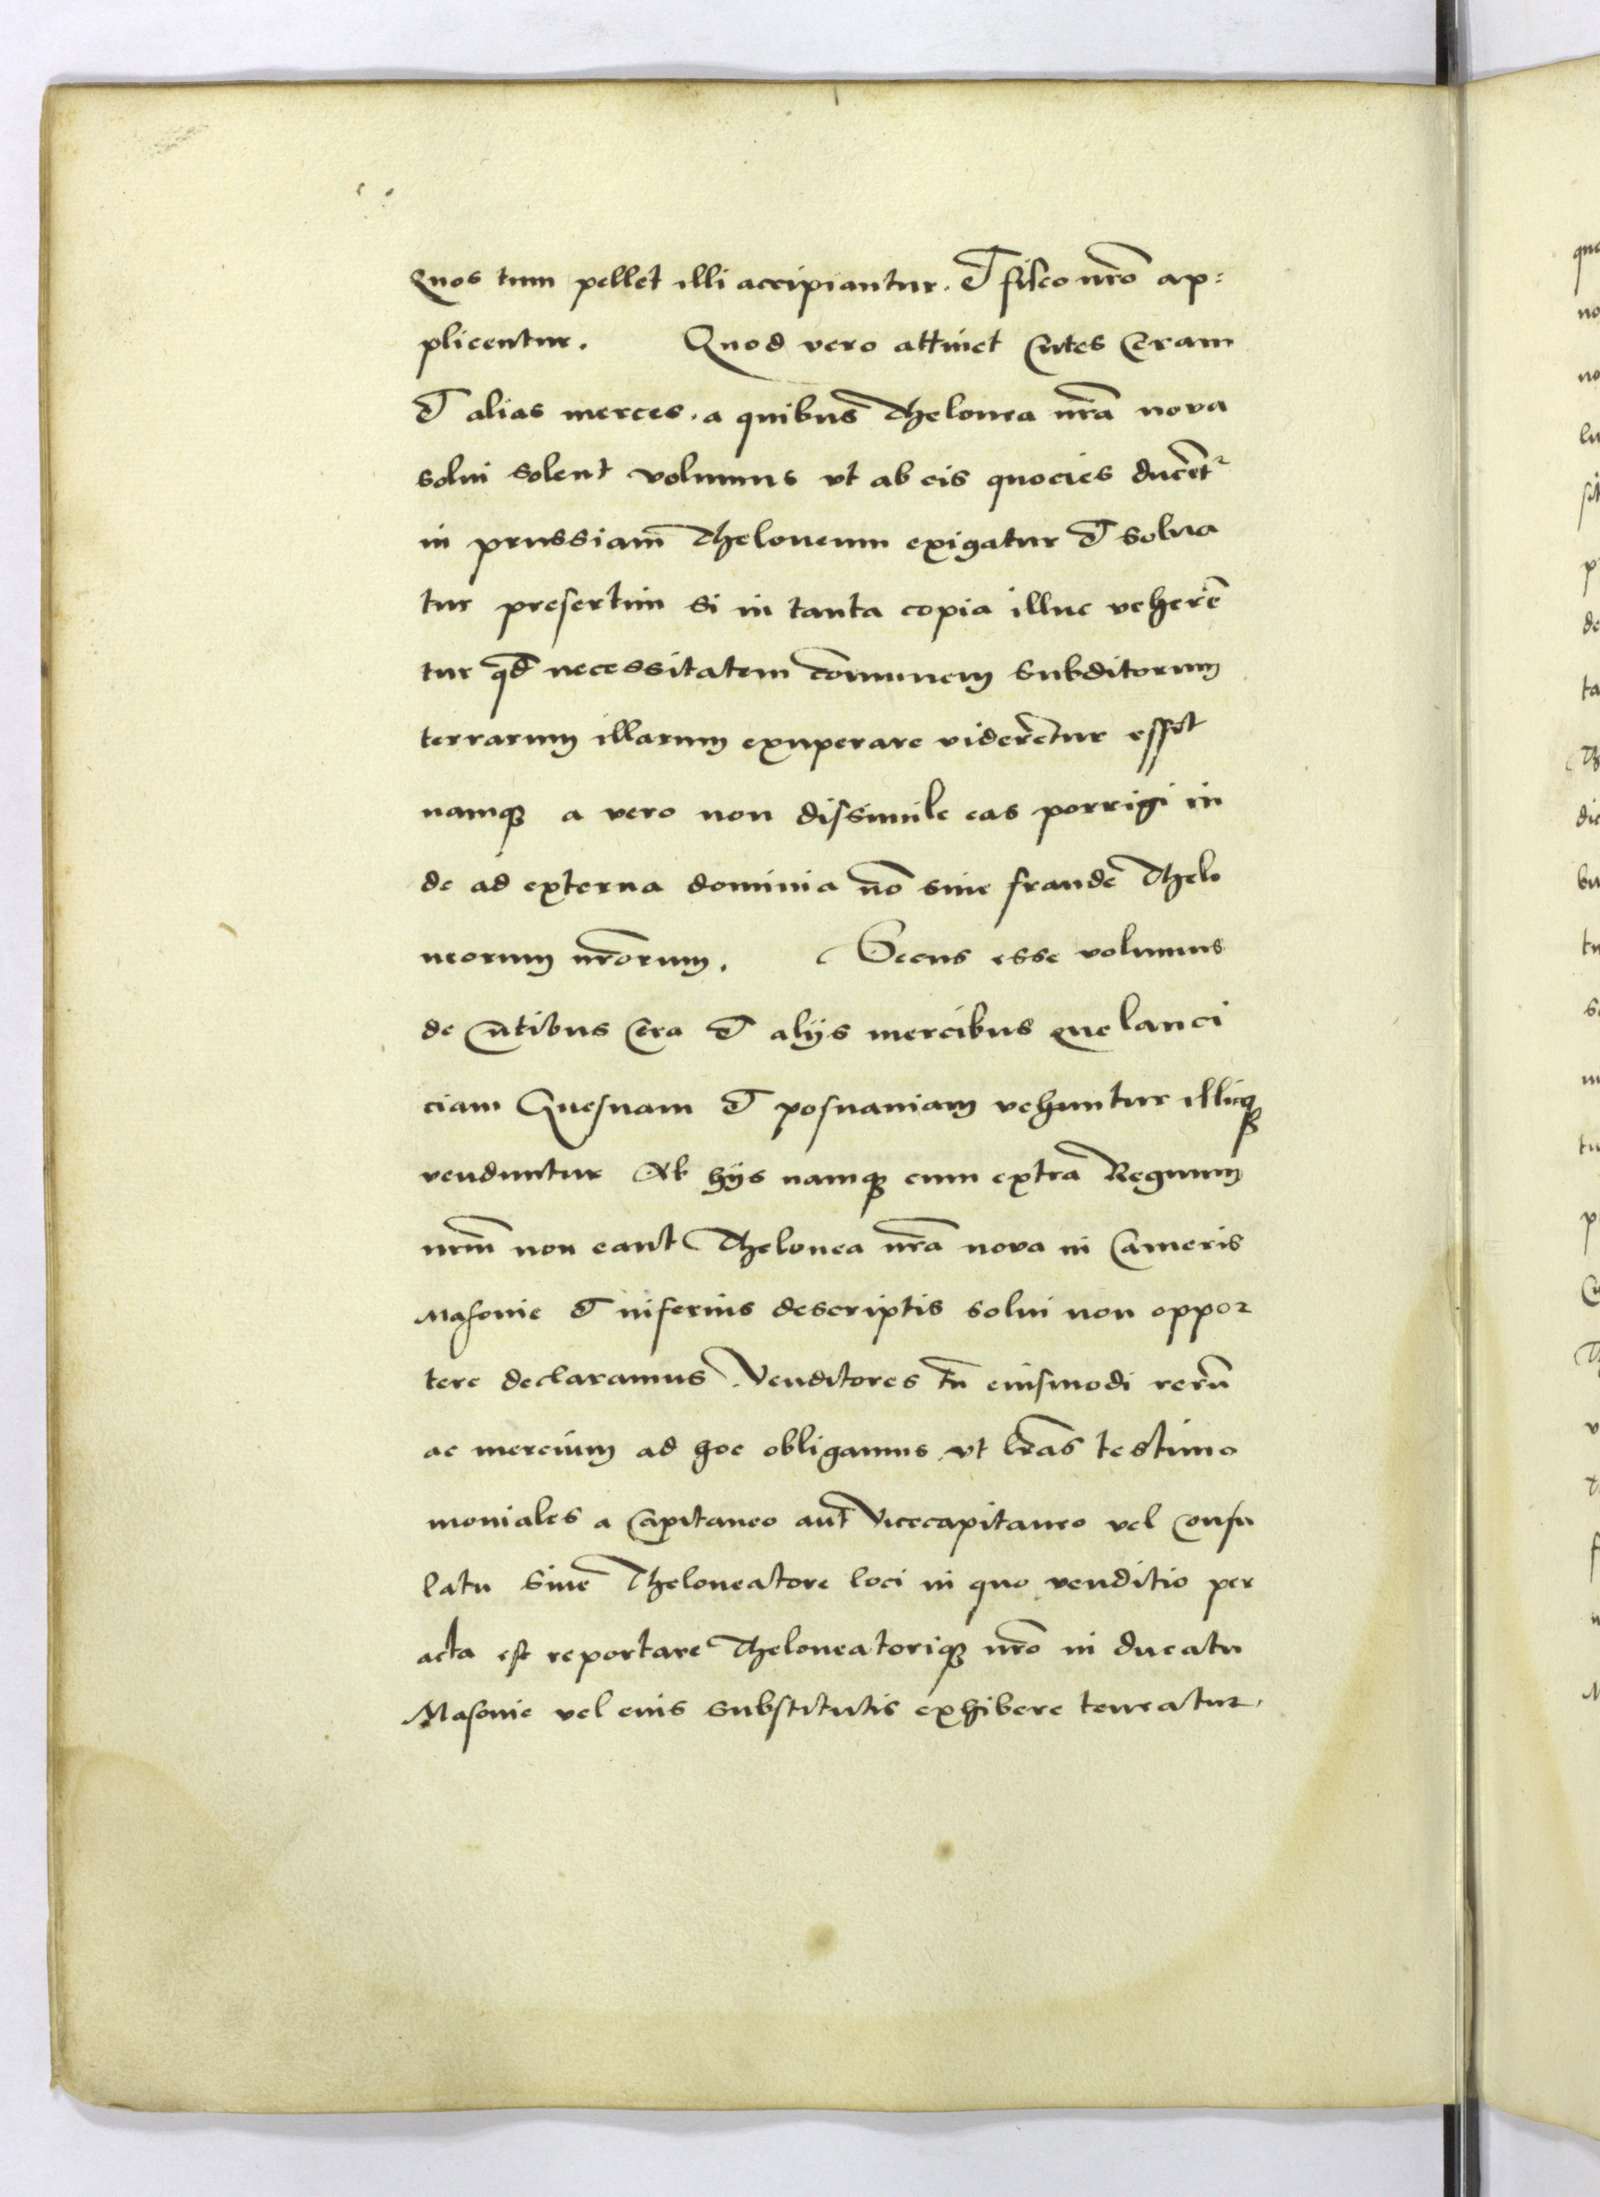 Quos tum pellet illi accipiantur. Et fisco nr̃o ap:
plicentur. Quod vero attinet Cutes Ceram
Et alias merces. a quibus Thelonea nr̃a nova
solui solent volumus vt ab eis quocies ducẽt᷑
in prussiam Theloneum exigatur Et solua
tur presertim si in tanta copia illuc veherẽ
tur qd̃ necessitatem cõmunem subditorum
terrarum illarum exuperare viderẽtur esset
namq̃ a vero non dissimile eas porrigi in
de ad externa dominia nõ sine fraude Thelo
neorum nr̃orum. Secus esse volumus
de Cutibus Cera Et alijs mercibus que lanci
ciam Gnesnam Et posnaniam vehuntur illicq̃
venduntur Ab hijs namq̃ cum extra Regnum
nr̃m non eant Thelonea nr̃a nova in Cameris
Masouie Et inferius descriptis solui non oppor
tere declaramus. Venditores tñ eiusmodi rerũ
ac mercium ad hoc obligamus vt lr̃as testimo
moniales a Capitaneo aut Vicecapitaneo vel Consu
latu siue Theloneatore loci in quo venditio per
acta est reportare Theloneatoriq̃ nr̃o in ducatu
Masouie vel eius substitutis exhibere teneatur.